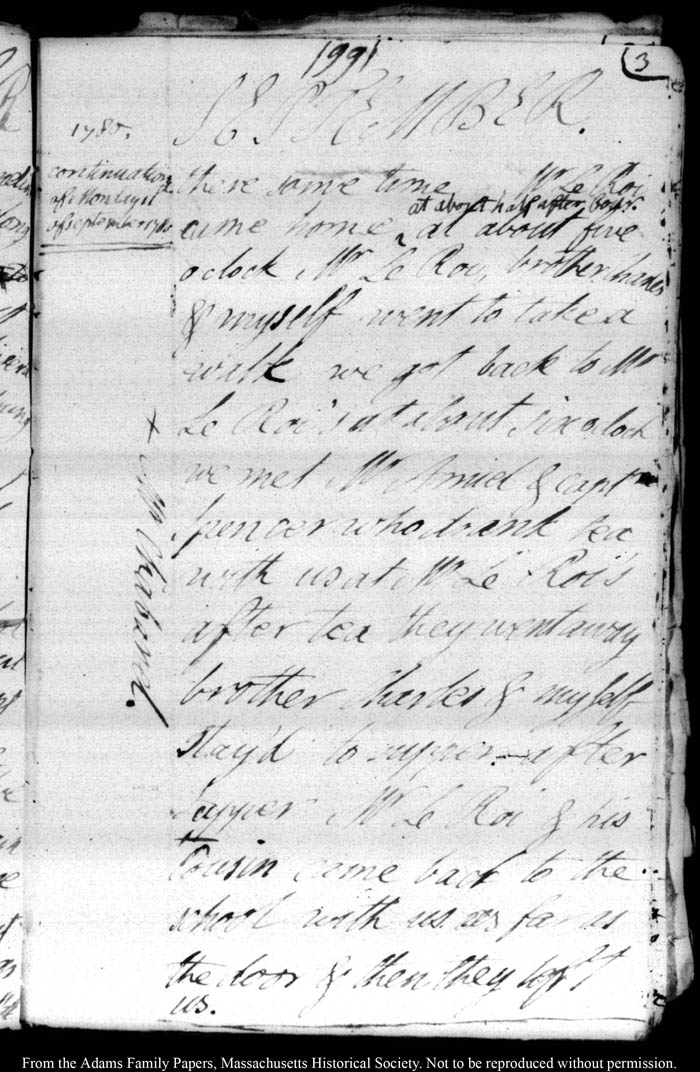 1991
3
SEPTEMBER.
1780.
continuation
of Monday 11
of september 1780
there some time Mr Le Roi
came home at about half after four. at about five
oclock Mr Le Roi, brother Charles
& myself went to take a
walk we got back to Mr
Le Roi's at about six oclock
we met Mr Amiel & capt
Spencer who drank tea
with us at Mr Le Roi's
after tea they went away
brother Charles & myself
stay'd to supper. after
supper Mr Le Roi & his
Cousin came back to the
school with us as far as
the door & then they left
us.
x
From the Adams Family Papers, Massachusetts Historical Society. Not to be reproduced without permission.